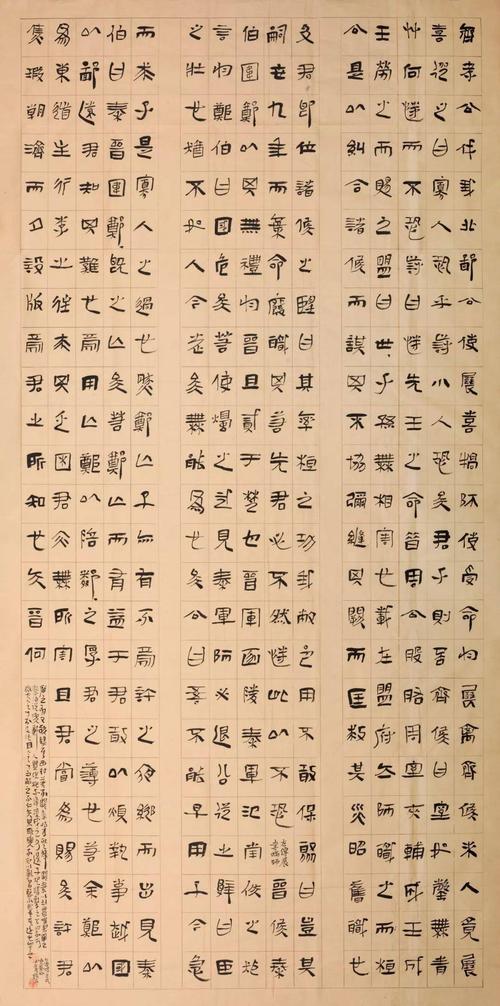 齊孝公伐我北鄙公使展喜犒師使受命于展禽齊侯未入竟展
喜從之曰寡人恐乎對小人恐矣君子則否齊侯曰室如罄無青
艸何恃而不恐對曰恃先王之命昔周公股肱周室夾輔成
王勞之而賜之盟曰世子孫無相害也載在盟府太師職之桓
公是以糾合諸侯而謀其不協彌縫其闕而匡救其災昭舊職也
及君即位諸侯之望曰其率桓之功我敝之用不敢保聚曰豈其
嗣世九年而棄命廢職其若先君必不然恃此以不恐 左傳展喜犒師 晉侯秦
伯圍鄭以其無禮于晉且貳于楚也晉軍函陵秦軍氾南佚之狐
言于鄭伯曰國危矣若使燭之武見秦軍師必退公從之辭曰臣
之壯也猶不如人今老矣無能為也矣公曰吾不能早用子今急
而求子是寡人之過也然鄭亡子亦有不焉許之夜縋而出見秦
伯曰秦晉圍鄭既知亡矣若鄭亡而有益于君敢以煩執事越國
以鄙遠君知其難也焉用亡鄭以陪鄰之厚君之薄也若舍鄭以
為東道主行李之往來其乏困君亦無所害且君嘗為賜矣許君
焦瑕朝濟而夕設版焉君之所知也夫晉何